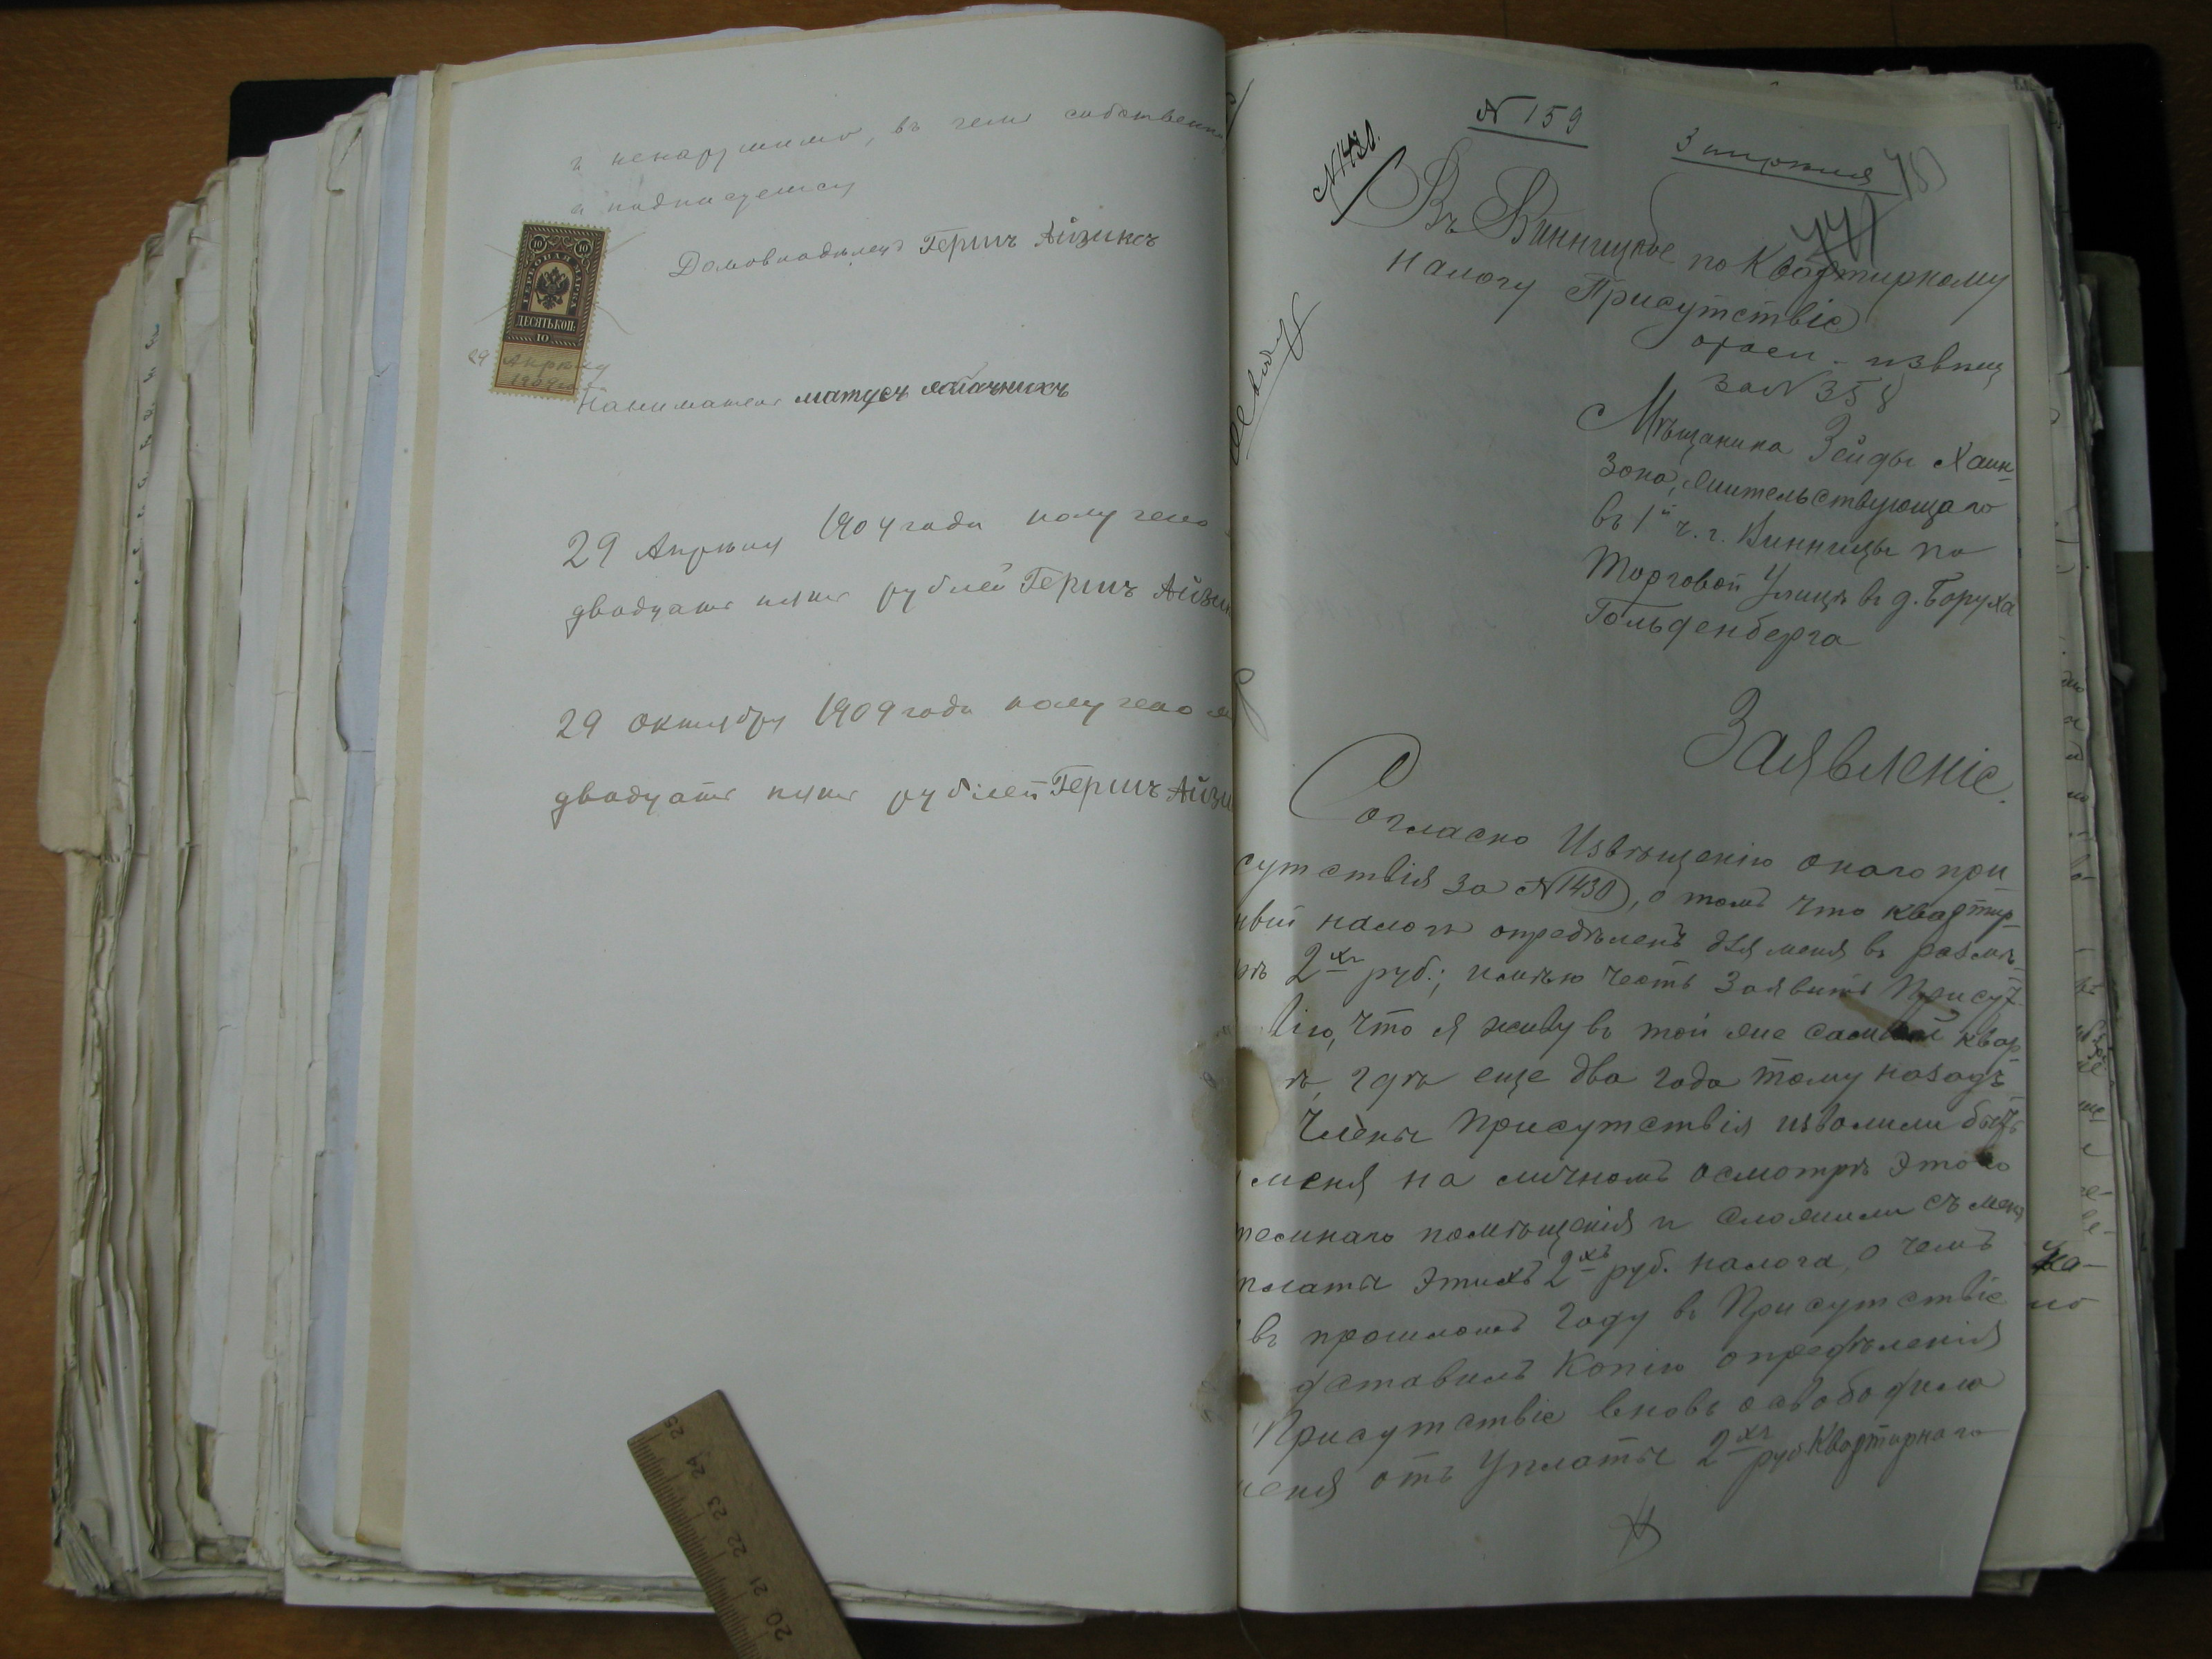 и ненарушимо, въ чемъ собственно
и подписуемся
Домовладелецъ Гершъ Айзиксъ
10 10
ГЕРБОВАЯ МАРКА
ДЕСЯТЬ КОП:
10
29 Апреля
1909 го
Наниматель матусъ
29 Апреля 1909 года получено
двадцать пять рублей Гершъ Айзи
29 Октября 1909 года получено
двадцать пять рублей Гершъ Айзи
25 24 23 22 21 20
N 159
N 1430.
3
441
Въ Винницкое по Квартирному
налогу Присутствіе
за N 358
Мѣщанина Зейды Хаин-
зона, жительствующаго
въ 1й ч. г. Винницы по
Торговой Улицѣ въ д. Боруха
Гольденберга
Заявленіе.
Согласно Извѣщенію онаго при
сутствія за N 1430, о томъ что квартир-
ный налогъ опредѣленъ для меня въ размѣ-
рѣ 2хъ руб.; имѣю честь Заявить Присут-
вію, что я живу въ той же самой квар-
ѣ, гдѣ еще два года тому назадъ
Члены Присутствія изволили быть
меня на личномъ осмотрѣ этого
темнаго помѣщенія и сложили съ меня
платы этихъ 2хъ руб. налога, о чемъ
въ прошломъ Году въ Присутствіе
дставилъ Копію опредѣленія
Присутствіе вновь освободило
меня отъ Уплаты 2хъ руб Квартирнаго